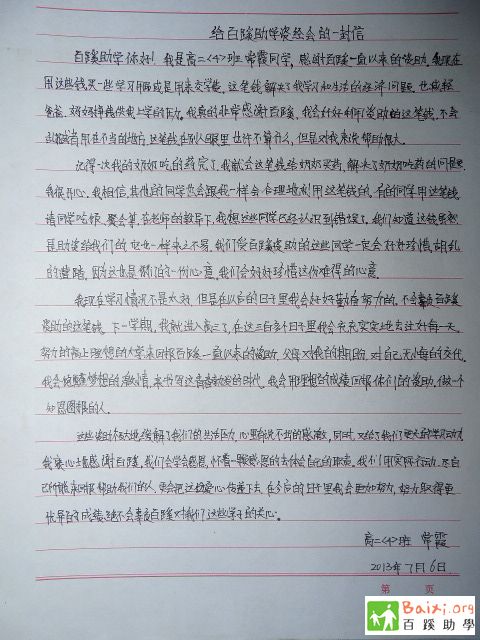 给百蹊助学资基会的一封信
百蹊助学你好！我是高二<4>班常霞同学，感谢百蹊一直以来的资助。我现在
用这些钱买一些学习用品或是用来交学费。这笔钱解决了我学习和生活的经济问题。也减轻
爸爸、奶奶挣钱供我上学的压力。我真的非常感谢百蹊。我会好好利用资助的这笔钱。不去
用在不当的地方，这笔钱在别人眼里也许不算什么，但是对我来说帮助很大。
记得一次我的奶奶吃的药完了。我就会这笔钱给奶奶买药，解决了奶奶吃药的问题。
我很开心。我相信，其他的同学也会跟我一样会合理地利用这笔钱的。有的同学用这笔钱
请同学吃饭、聚会等，在老师的教导下，我想这些同学已经认识到错误了。我们知道这钱虽然
是助资给我们的，它也一样来之不易，我们受百蹊资助的这些同学一定会好好珍惜，
的遭踏，因为这也是你们的一份心意，我们会好好珍惜这份难得的心意。
我现在学习情况不是太好，但是在以后的日子里我会好好勤奋努力的，不会辜负百蹊
资助的这笔钱，下一学期，我就进入高三了，在这三百多个日子里我会充充实实地去过好每一天，
努力的考上理想的大学来回报百蹊一直以来的资助，父母对我的期盼，对自己无悔的交代，
我会梦想的激情，来书写这青春勃发的时代。我会用理想的成绩回报你们的资助，做一个
知恩图报的人。
这些资助极大地缓解了我们的生活压力，心里有说不出的感激，同时，又给了我们更大的学习动力，
我衷心地感谢百蹊，我们会学会感恩，怀着一颗感恩的去体会自己的职责，我们用实际行动，尽自
己所能来回报帮助我们的人，更会把这份爱心传递下去，在今后的日子里我会更加努力，努力取得更
优异的成绩，绝不会辜负百蹊对我们这些学子的关心。
高二<4>班 常霞
2013年7月6日.
第 页
Baixi.org
百蹊助學